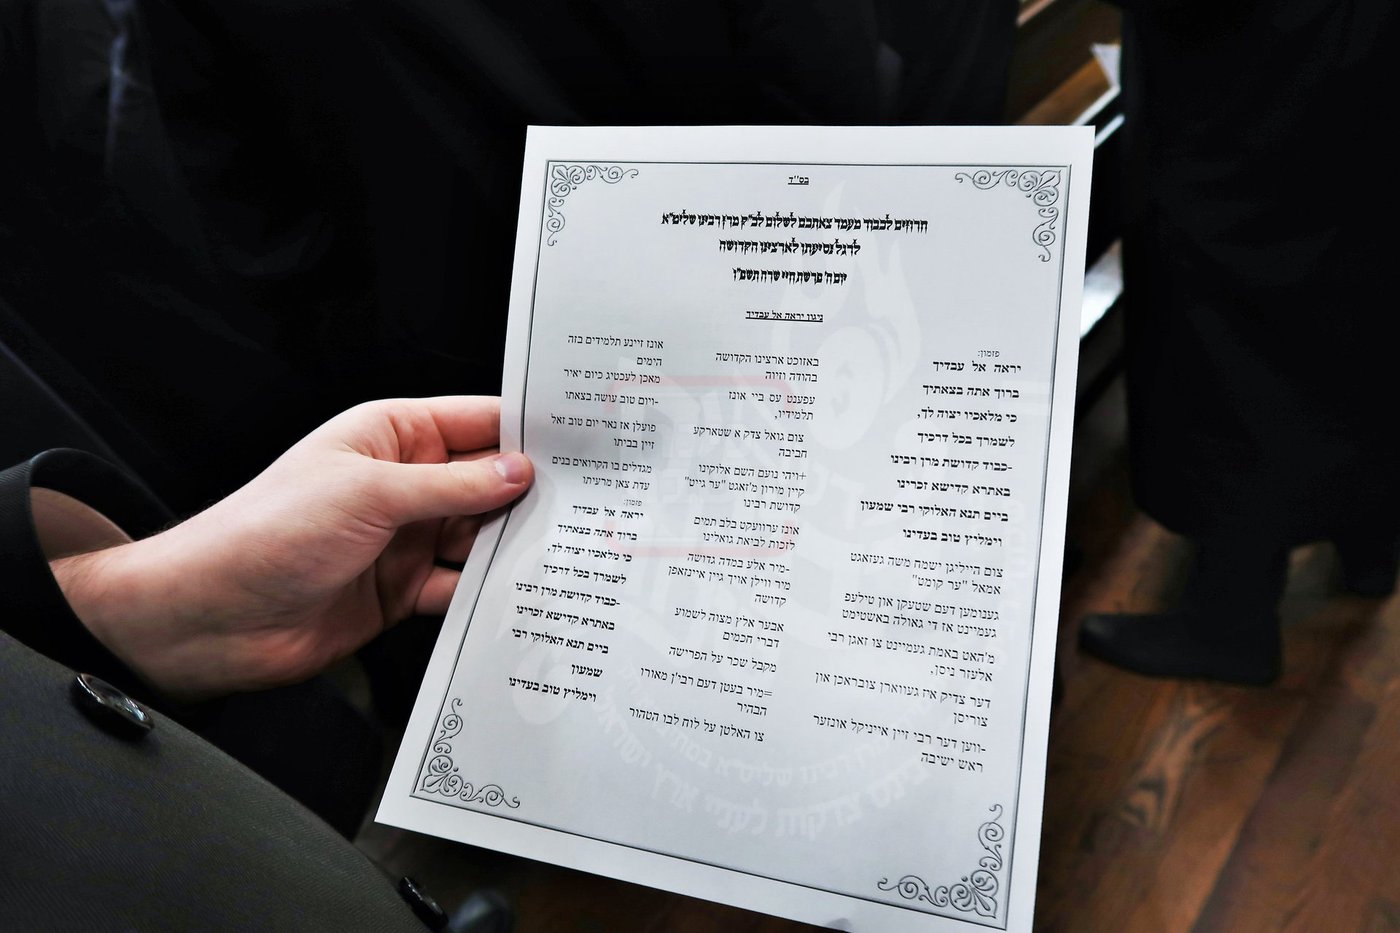 בס''ד
חרוזים לכבוד מעמד צאתכם לשלום לכ"ק מרן רבינו שליט"א
לרגל נסיעתו לארצינו הקדושה
יום ה' פרשת חיי שרה תשפ"ו
ניגון יראה אל עבדיך
פזמון:
יראה אל עבדיך
ברוך אתה בצאתיך
כי מלאכיו יצוה לך,
לשמרך בכל דרכיך
-כבוד קדושת מרן רבינו
באתרא קדישא זכרינו
ביים תנא האלוקי רבי שמעון
וימליץ טוב בעדינו
צום הייליגן ישמח משה געזאגט
אמאל "ער קומט"
גענומען דעם שטעקן און טילעפ
געמיינט אז די גאולה באשטימט
מ'האט באמת געמיינט צו זאגן רבי
אלעזר ניסן,
דער צדיק איז געווארן צובראכן און
צוריסן
-ווען דער רבי זיין אייניקל אונזער
ראש ישיבה
באזוכט ארצינו הקדושה
בהודה וזיוה
עפענט עס ביי אונז
תלמידיו,
צום גואל צדק א שטארקע
חביבה
+ויהי נועם השם אלוקינו
קיין מירון מ'זאגט "ער גייט"
קדושת רבינו
אונז ערוועקט בלב תמים
לזכות לביאת גואלינו
-מיר אלע במדה גדושה
מיר ווילן אויך גיין איינזאפן
קדושה
אבער אלץ מצוה לשמוע
דברי חכמים
מקבל שכר על הפרישה
=מיר בעטן דעם רבי'ן מאורו
הבהיר
צו האלטן על לוח לבו הטהור
אונז זיינע תלמידים בזה
הימים
מאכן לעכטיג כיום יאיר
-ויום טוב עושה בצאתו
פועלן אז נאר יום טוב זאל
זיין בביתו
מגדלים בו הקרואים בנים
עדת צאן מרעיתו
פזמון:
יראה אל עבדיך
ברוך אתה בצאתיך
כי מלאכיו יצוה לך,
לשמרך בכל דרכיך
-כבוד קדושת מרן רבינו
באתרא קדישא זכרינו
ביים תנא האלוקי רבי
שמעון
וימליץ טוב בעדינו
שליט"א
צדקות לעניי ארץ ישראל